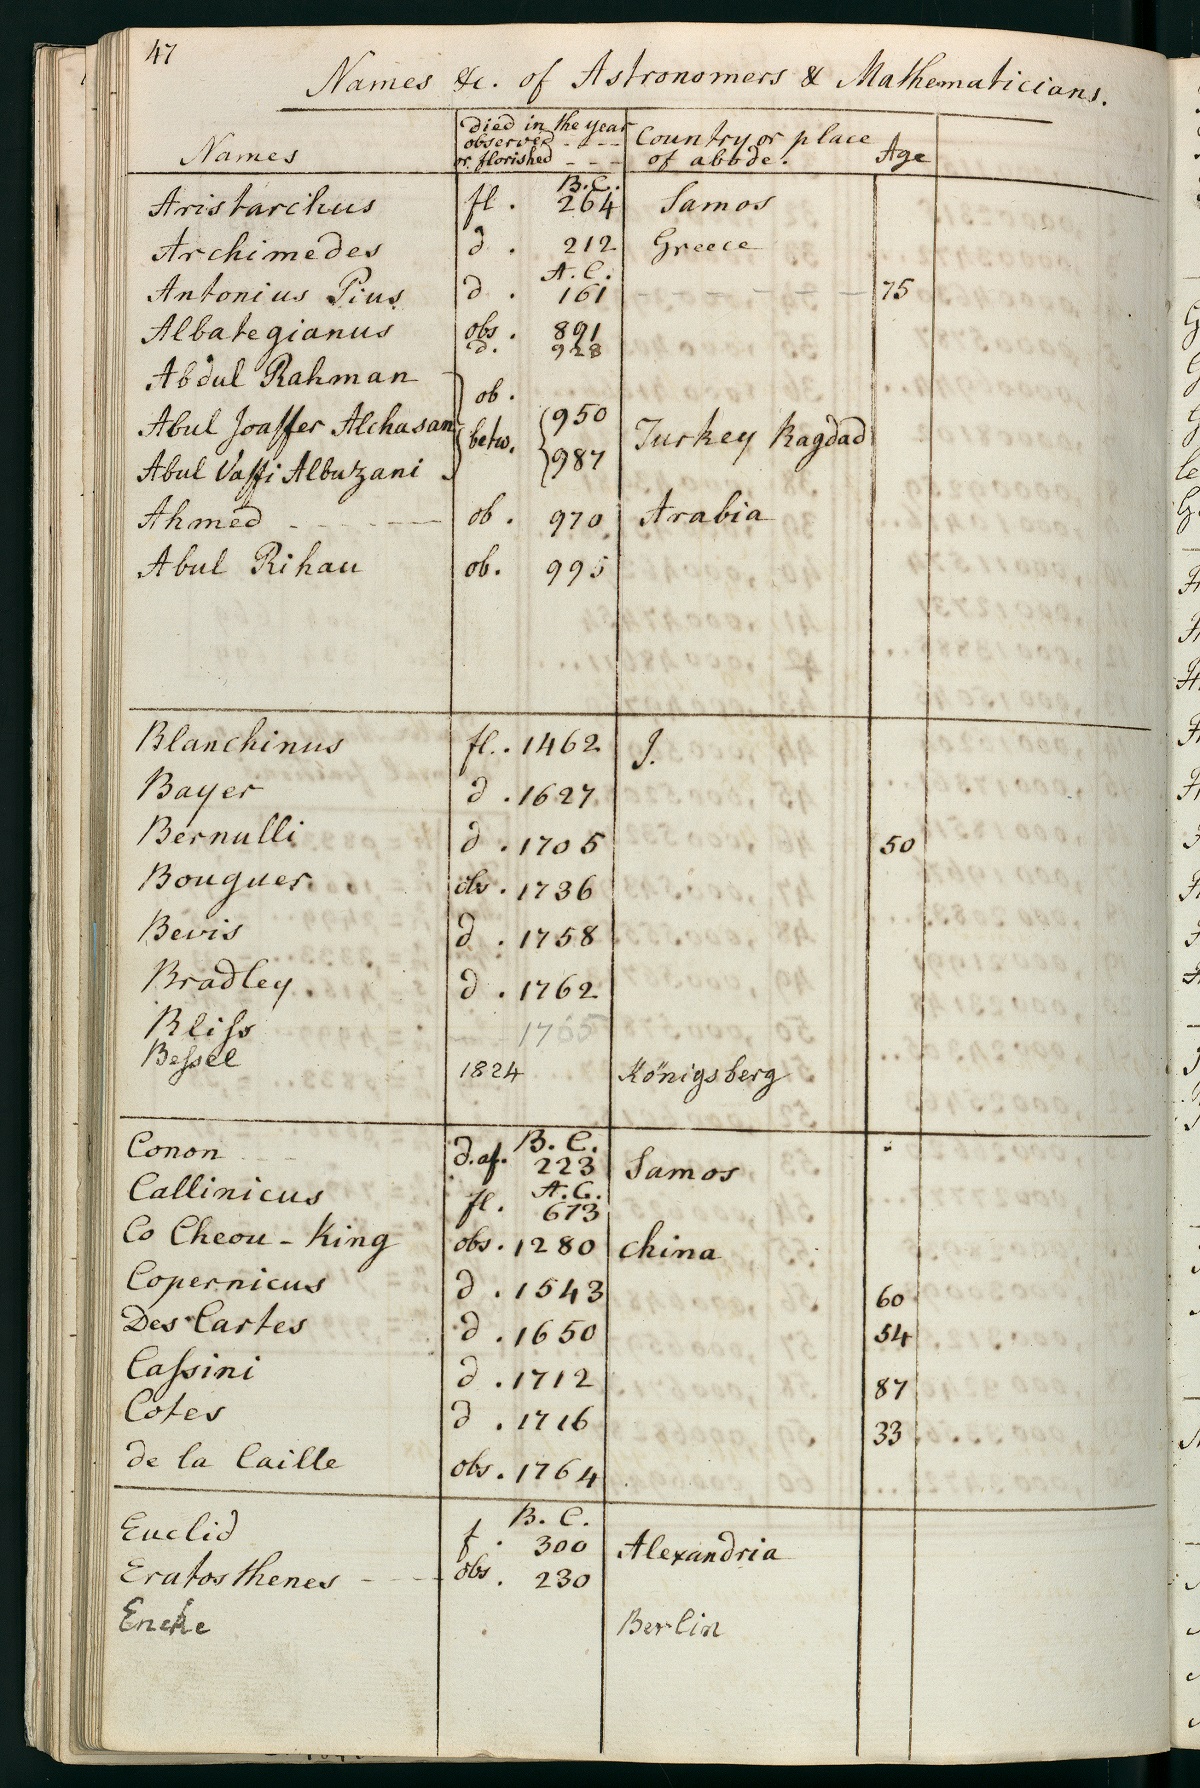 47
Names &c. of Astronomers & Mathematicians.
Names
died in the year
observed - - -
or florished - - -
Country or place
of abode.
Age
B.C.
Aristarchus fl. 264 Samos
Archimedes d. 212 Greece
A.C.
Antonius Pius d. 161 - - - - - - 75
Albategianus obs. 891
d. 928
Abdul Rahman
ob.
Abul Joaffer Alchasan betw. 950 Turkey Bagdad
Abul Vaffi Albuzani 987
Ahmed - - - - - ob. 970 Arabia
Abul Rihau ob. 995
Blanchinus fl. 1462 J.
Bayer d. 1627
Bernulli d. 1705 50
Bouguer obs. 1736
Bevis d. 1758
Bradley d. 1762
Bliss 1765
Bessel 1824 Königsberg
B. C.
Conon - - - d. af. 223 Samos
A.C.
Callinicus fl. 673
Co Cheou-King obs. 1280 China
Copernicus d. 1543 60
Des Cartes d. 1650 54
Cassini d. 1712 87
Cotes d. 1716 33
de la Caille obs. 1764
B. C.
Euclid f. 300 Alexandria
Eratosthenes - - - obs. 230
Encke Berlin